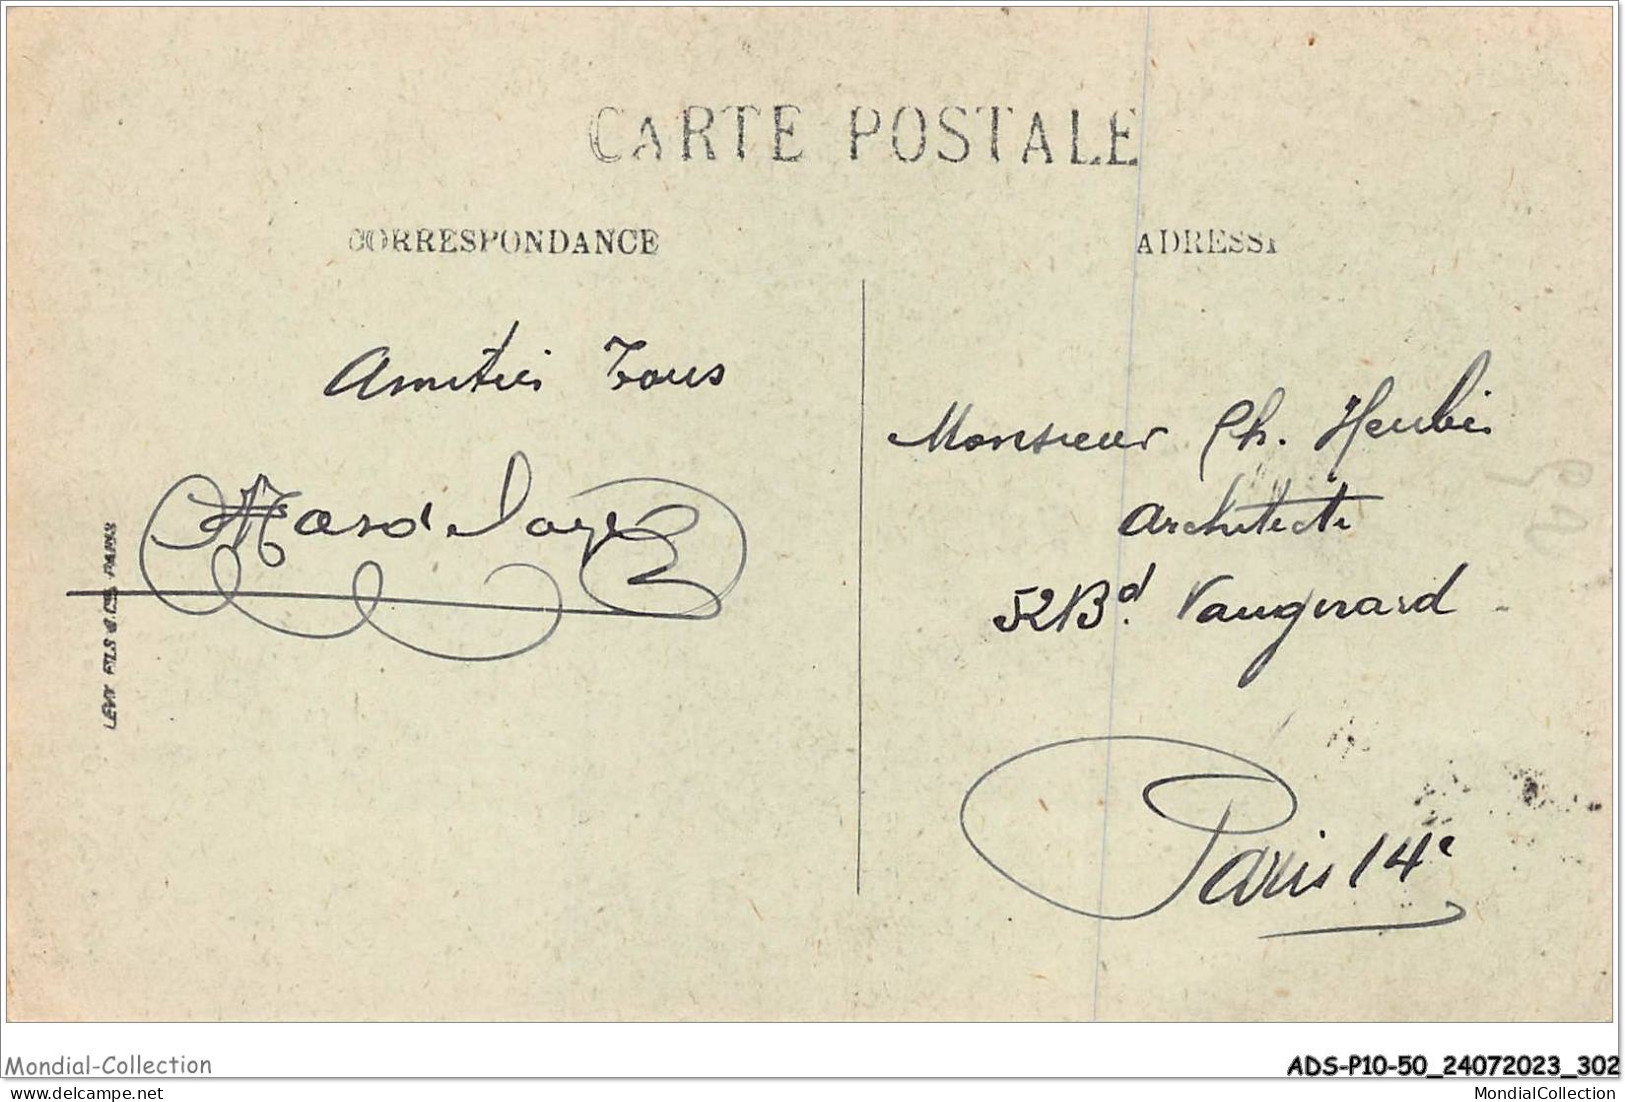 CARTE POSTALE
CORRESPONDANCE
ADRESSE
Amitiés Tous
Monsieur Ch. Heubès
Architecte
52 Bd. Vaugirard
Paris 14e
LEVY FILS & CIE. PARIS
Mondial-Collection
ADS-P10-50_24072023_302
MondialCollection